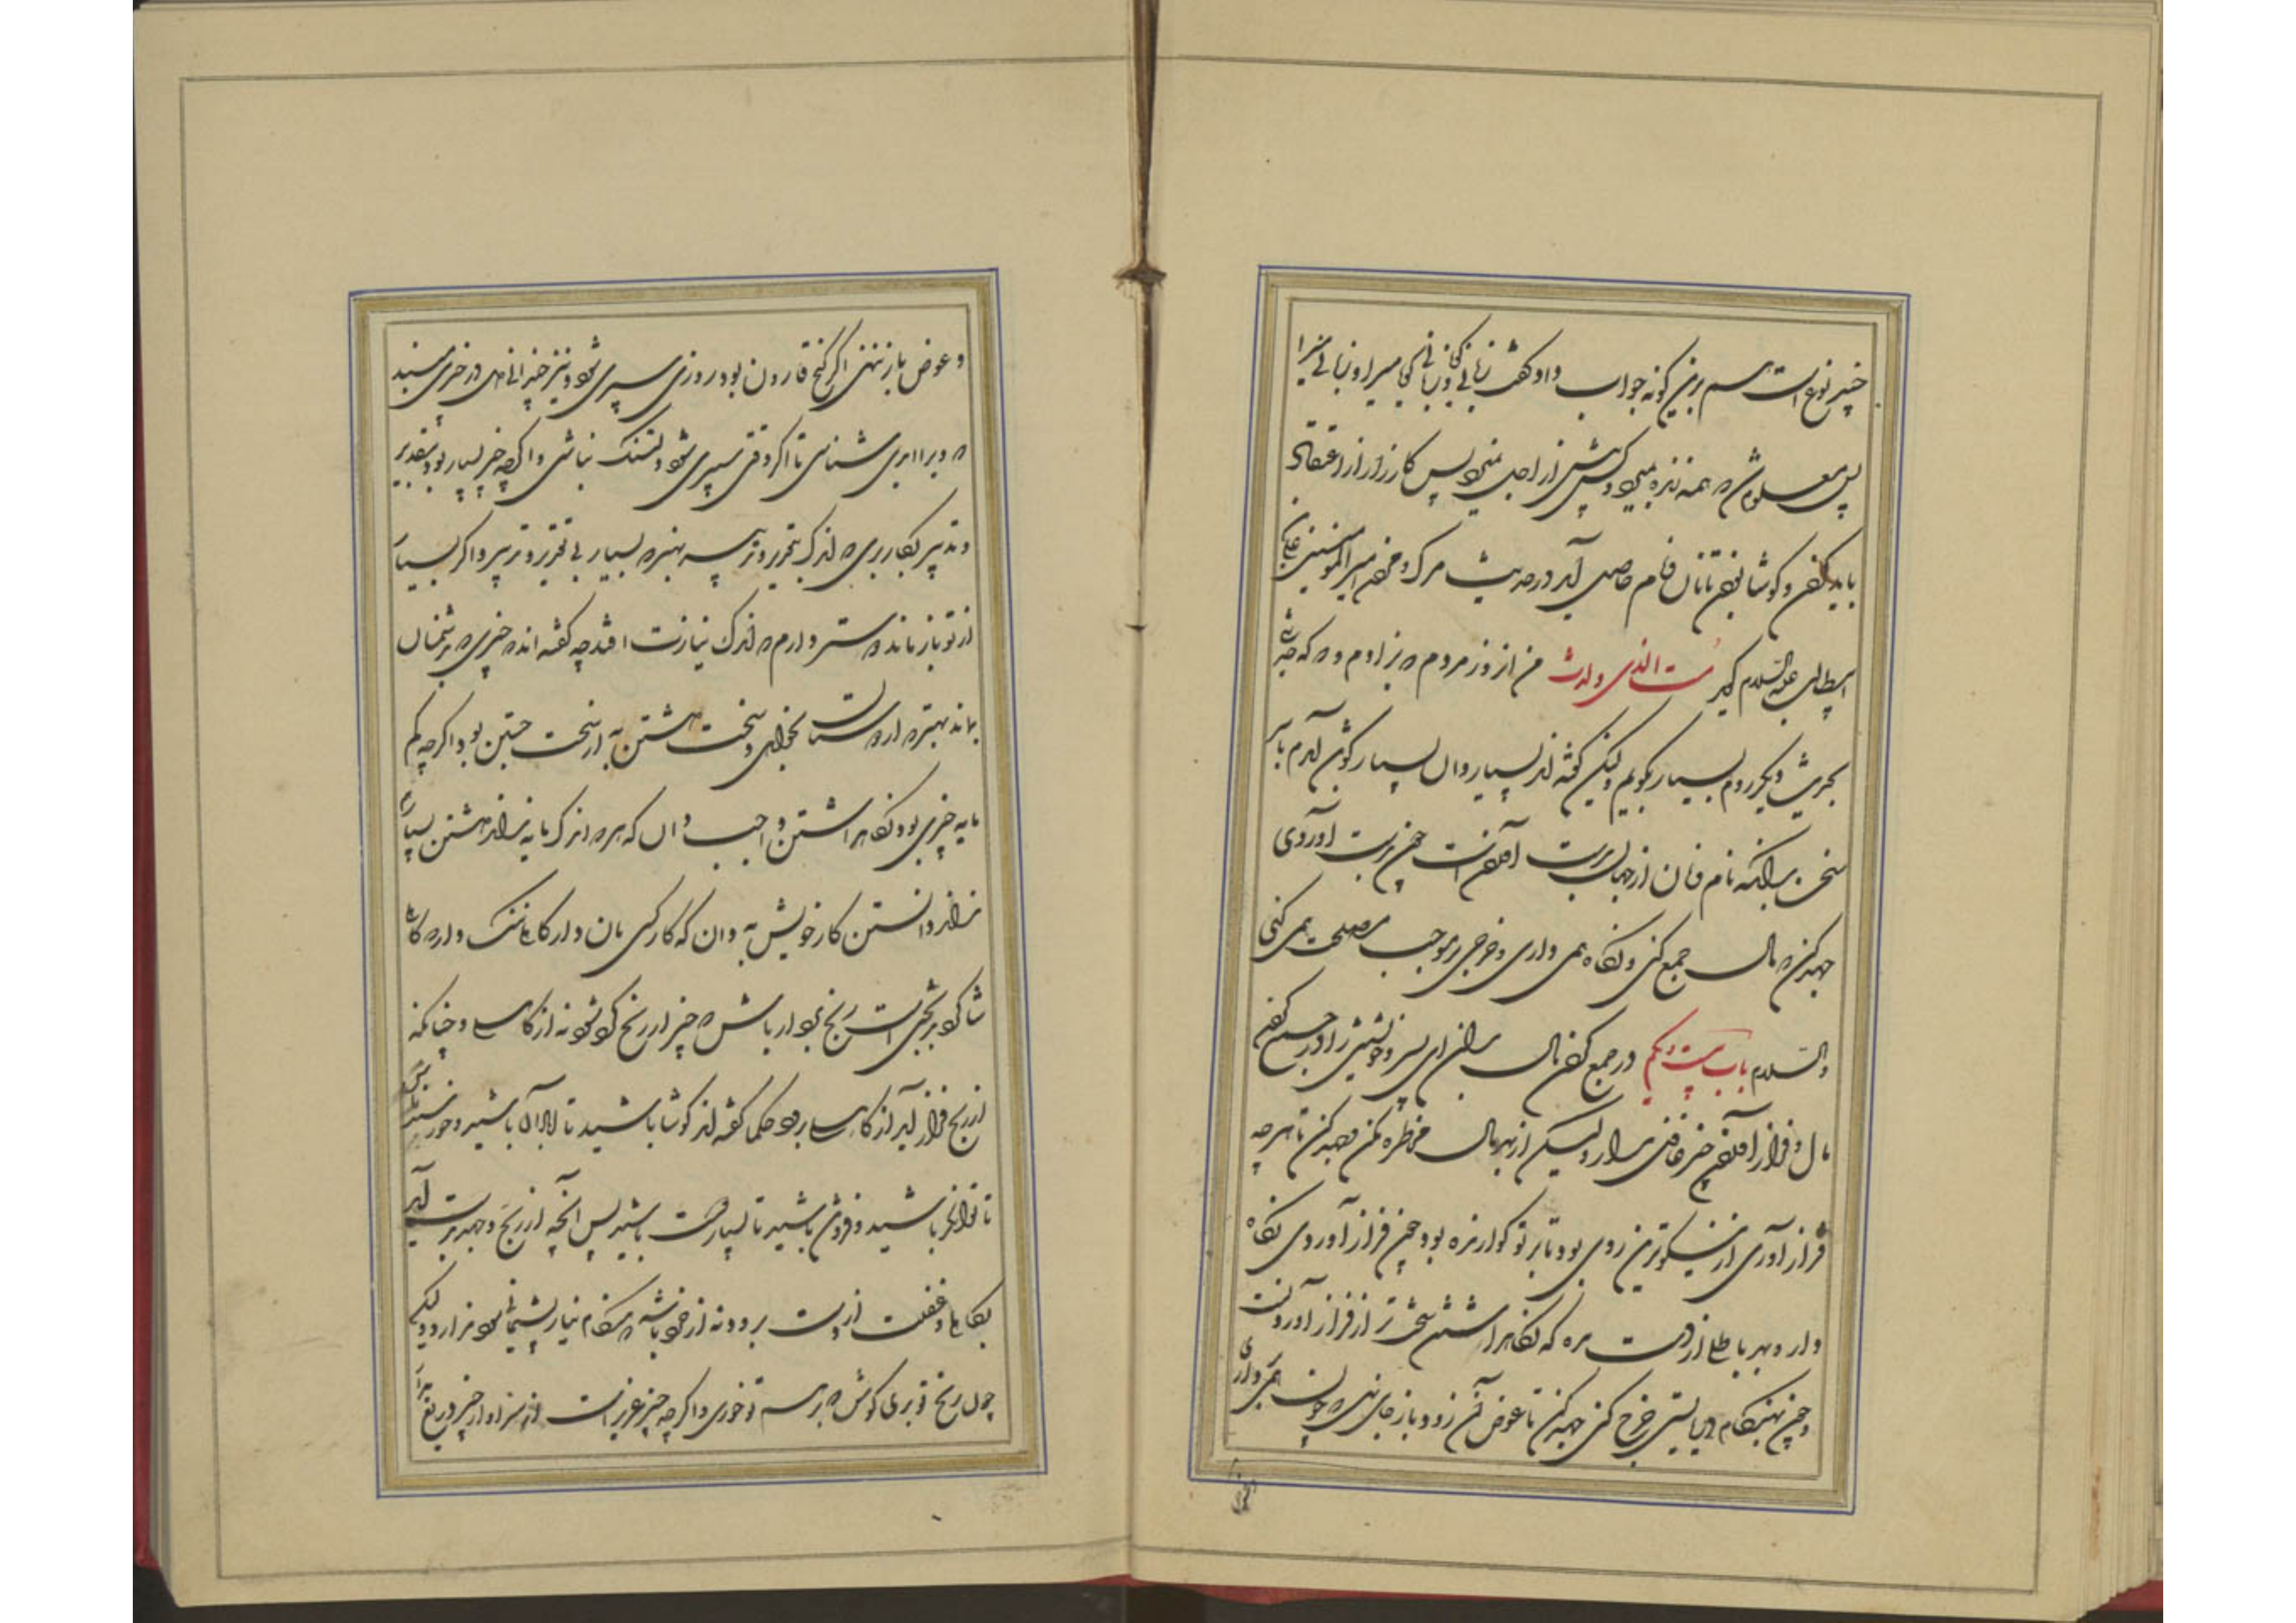 چند نوع است هم برین گونه جواب داد و گفت زبانی گیا و زبانی گیا میرا و زبانی میرا
پس معلوم شد که همه زنده بمیرد و کس پیش از اجل نمیرد پس کارزار از اعتقاد
باید کردن و کوشا بودن تا نان و نام حاصل آید در حدیث مرگ و مردن امیرالمؤمنین علی بن
ابیطالب علیه السلام گوید مت الذی ولدت من آن روز مردم که بزادم و که چه
بحدیث دیگر روم بسیار بگویم ولیکن گفته اند بسیار دان بسیار گوی آمدم با سر
سخن بدانکه نام و نان از جهان بدست آوردن است چون بدست آوردی
جهد کن که مال جمع کنی و نگاه همی داری و خرج بر موجب مصلحت همی کنی
والسلام باب بیست و یکم در جمع کردن مال بدان ای پسر و خویشتن را در جمع کردن
مال و فراز آوردن چیز غافل مدار ولیکن از بهر مال مخاطره مکن و جهد کن تا هر چه
فراز آوری از نیکوترین روی بود تا بر تو گوارنده بود و چون فراز آوردی نگاه
دار و بهر باطلی از دست مده که نگاه داشتن سخت تر از فراز آوردنست
و چون بهنگام دربایستی خرج کنی جهد کن تا عوض آن زود باز جای نهی که چون همی برداری
و عوض باز ننهی اگر گنج قارون بود روزی سپری شود و نیز چندانی دل در چیزی مبند
که ویرا ابدی شناسی تا اگر وقتی سپری شود دلتنگ نباشی و اگر چه چیز بسیار بود بتقدیر
و تدبیر بکار بری که اندک بتقدیر و تدبیر به بهتر که بسیار بی تقدیر و تدبیر و اگر بسیار
از تو باز ماند دوستر دارم که اندک نیازت افتد چه گفته اند چیزی که بدشمنان
بماند بهتر که از دوستان بخواهی و سخت داشتن به از سخت جستن بود اگر چه کم
مایه چیزی بود نگاه داشتن واجب دان که هر که اندک مایه نداند داشتن بسیار
نداند داشتن کار خویش به دان که کار کسان و از کاهلی ننگ دار که کاهلی
شاگرد بدبختی است رنج بردار باش که چیز از رنج گرد شود نه از کاهلی و چنانکه
از رنج فراز آید از کاهلی برود حکما گفته اند کوشا باشید تا آبادان باشید و خورسند باشید
تا توانگر باشید و فروتن باشید تا بسیار دوست باشید پس آنچه از رنج و جهد بدست آید
بکاهلی و غفلت از دست بردن نه از خرد باشد که هنگام نیاز پشیمانی سود ندارد ولیکن
چون رنج تو بری کوش که بر هم تو خوری و اگر چه چیز عزیز است از سزاوار چیز دریغ مدار